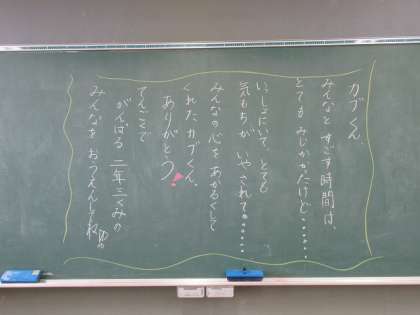 カブくん
みんなと すごす時間は、
とても みじかかたけど・・・・・・
いっしょにいて、とても
気もちが いやされて。・・・・・・
みんなの心を あかるくして
くれたカブくん。
ありがとう!
てんごくで
がんばる 二年三くみの
みんなを おうえんしてね